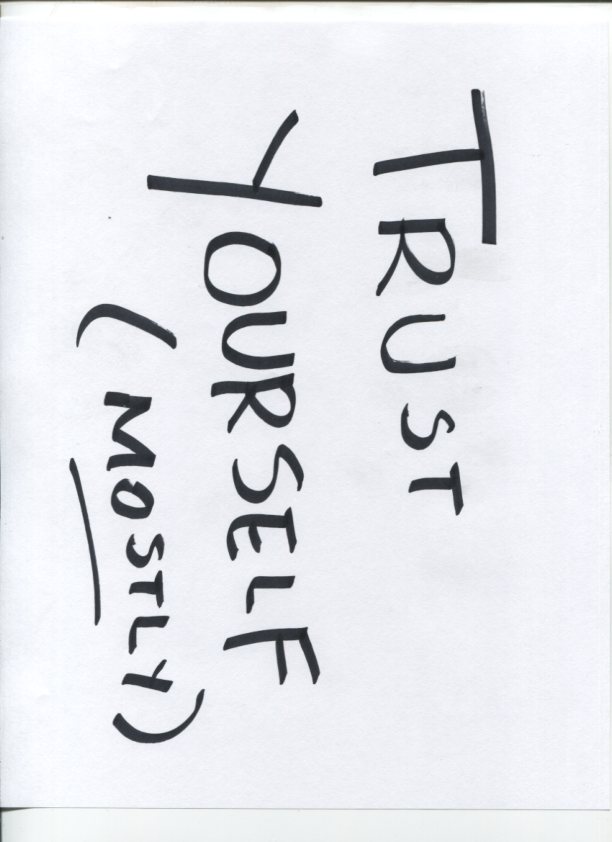 TRUST
YOURSELF
(MOSTLY)